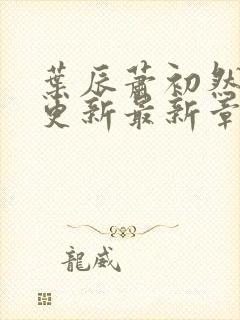 葉辰蕭初然
更新最新章
龍威